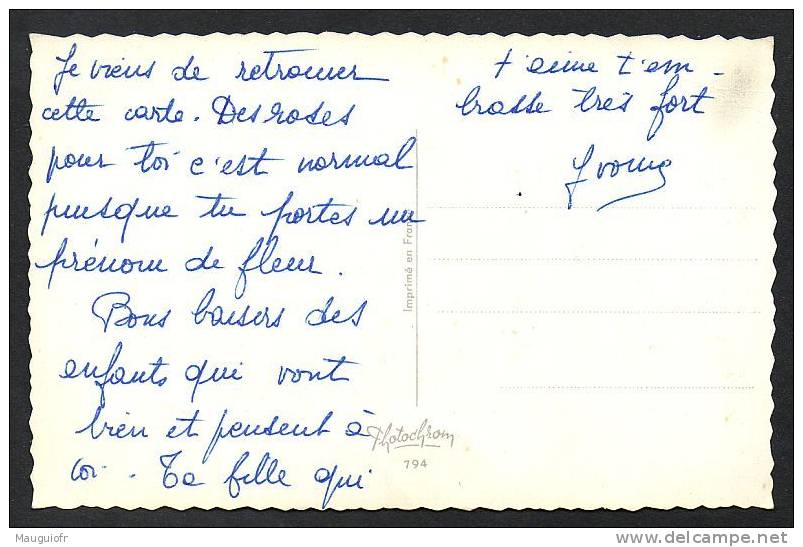 Je viens de retrouver
cette carte. Des roses
pour toi c'est normal
puisque tu portes un
prénom de fleur.
Bons baisers des
enfants qui vont
bien et pensent à
toi. Ta fille qui
t'aime t'em-
brasse très fort
Yvonne
Imprimé en Fran
Photochrom
794
Mauguiofr
delcampe.net